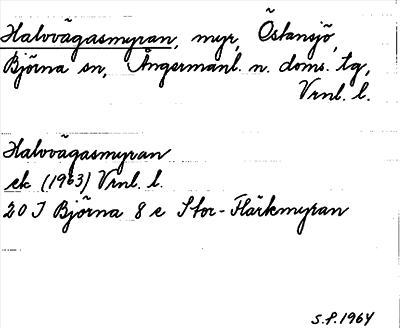 Halvvägasmyran, myr, Östansjö,
Björna sn, Ångermanl. n. doms. tg,
Vrnl. l.
Halvvägasmyran
ek (1963) Vrnl. l.
20 J Björna 8 e Stor-Flärkmyran
S.P. 1964